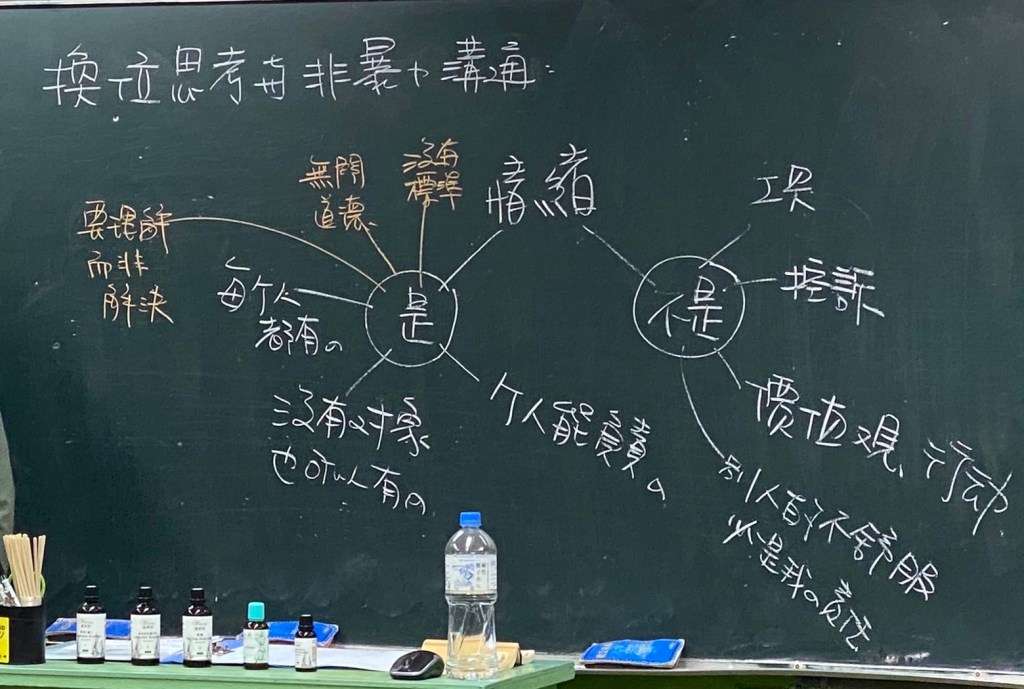 換位思考与非暴力溝通：
情緒
是
沒有
標準
無関
道德
要理解
而非
解決
每个人
都有の
沒有対象
也可以人有の
个人能負責
の
不是
工具
控訴
价值观、行动
别人的不舒服
不是我の責任